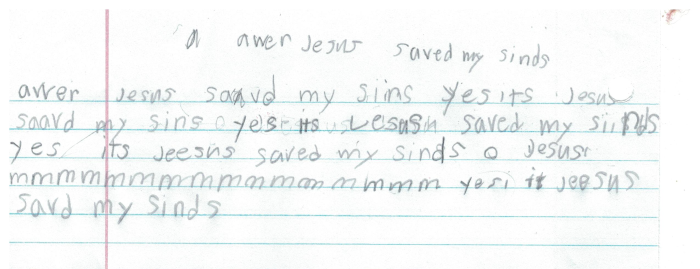 a awer Jesus saved my sinds
awer Jesus saavd my siins yes its Jesus
saavd my sins yes its Jesus saved my siinds
yes its Jeesus saved my sinds o Jesus
mmmmmmmmmmmmmmmm yesi it Jeesus
savd my sinds